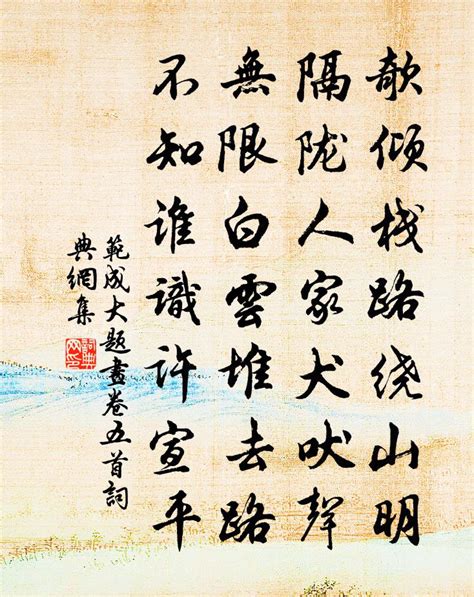 欹倾栈路绕山明
隔陇人家犬吠聲
無限白雲堆去路
不知谁識许宣平
範成大题畫卷五首詞
典網集